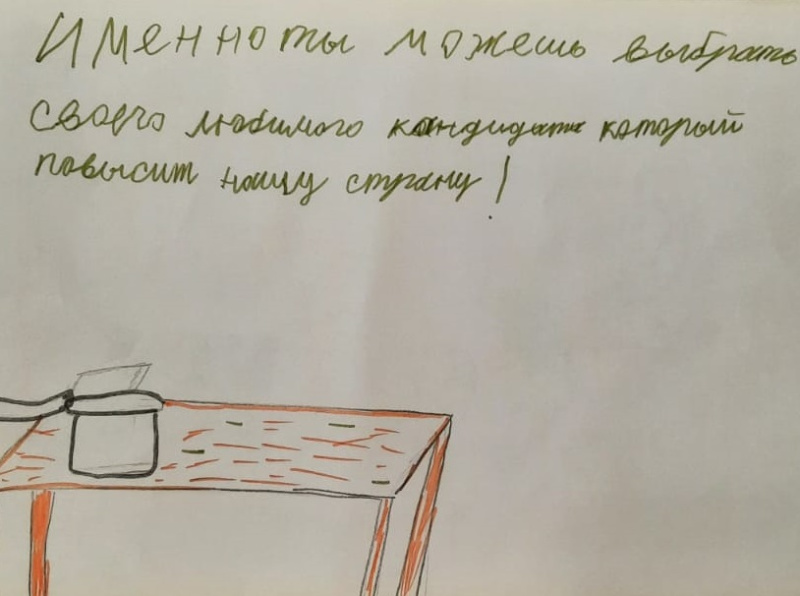 Именно ты можешь выбрать
своего любимого кандидата который
повысит нашу страну!